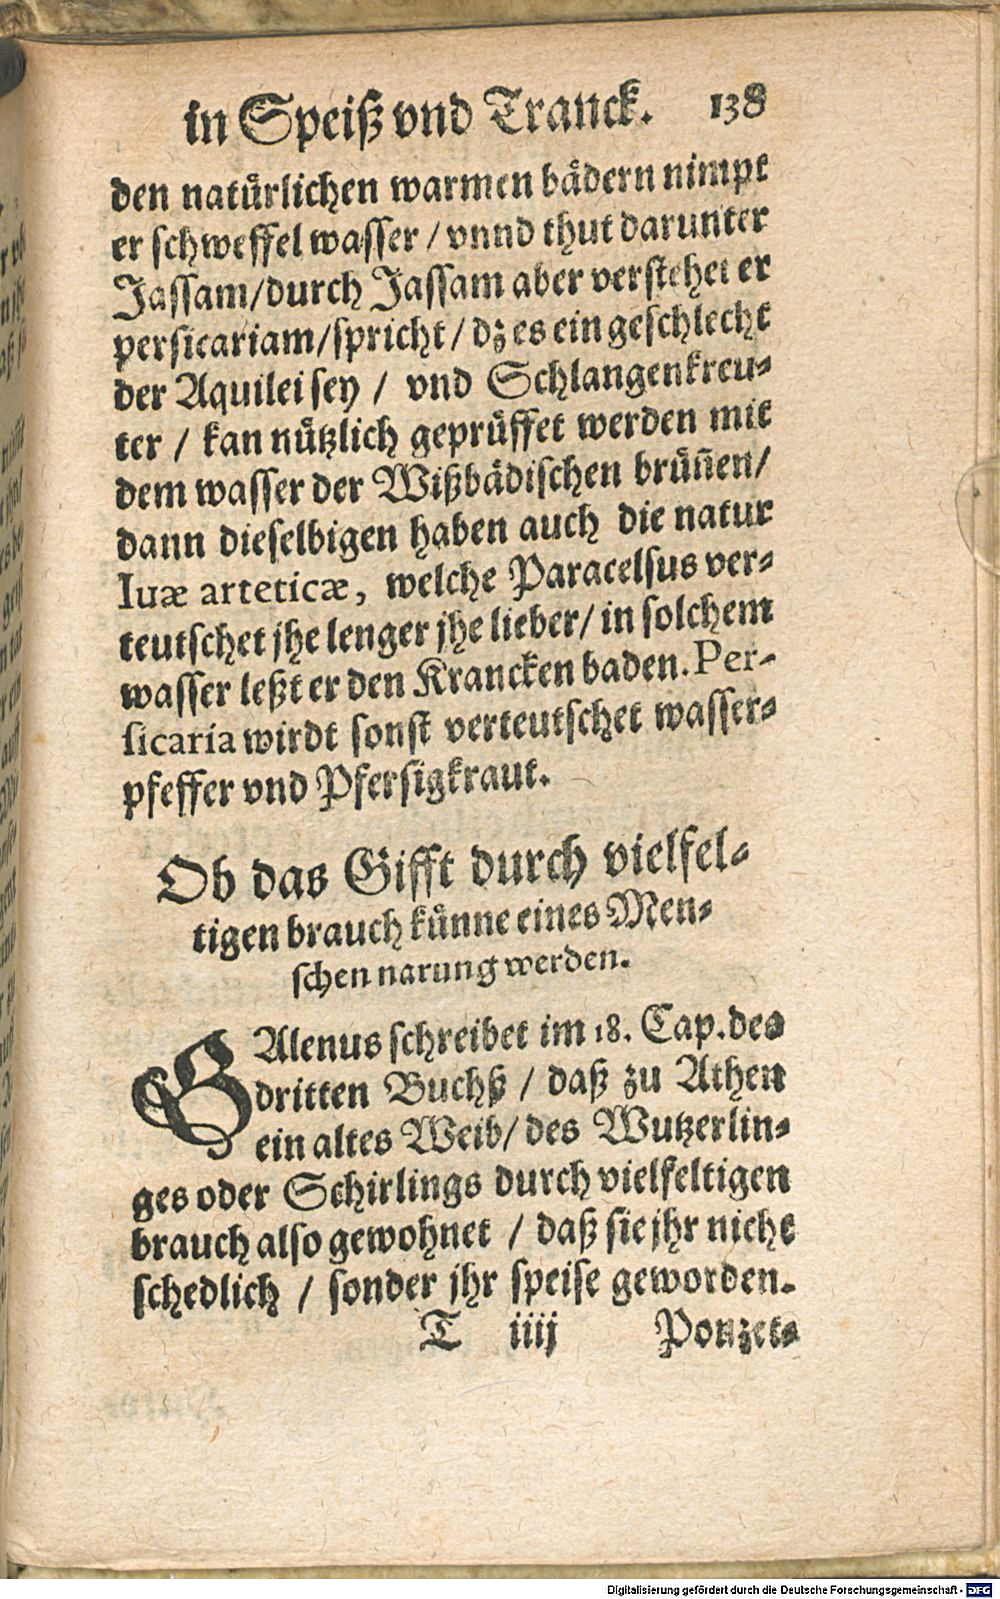 in Speiß vnd Tranck. 138
den natuͤrlichen warmen baͤdern nimpt
er schweffel wasser / vnnd thut darunter
Jassam/durch Jassam aber verstehet er
persicariam/spricht / dz es ein geschlecht
der Aquilei sey / vnd Schlangenkreu-
ter / kan nuͤtzlich gepruͤffet werden mit
dem wasser der Wißbaͤdischen bruͤñen/
dann dieselbigen haben auch die natur
Iuæ arteticæ, welche Paracelsus ver-
teutschet jhe lenger jhe lieber/ in solchem
wasser leßt er den Krancken baden. Per-
sicaria wirdt sonst verteutschet wasser-
pfeffer vnd Pfersigkraut.
Ob das Gifft durch vielfel-
tigen brauch kuͤnne eines Men-
schen narung werden.
GAlenus schreibet im 18. Cap. des
dritten Buchß / daß zu Athen
ein altes Weib/ des Wutzerlin-
ges oder Schirlings durch vielfeltigen
brauch also gewohnet / daß sie jhr nicht
schedlich / sonder jhr speise geworden.
T iiij Ponzet-
Digitalisierung gefördert durch die Deutsche Forschungsgemeinschaft - DFG